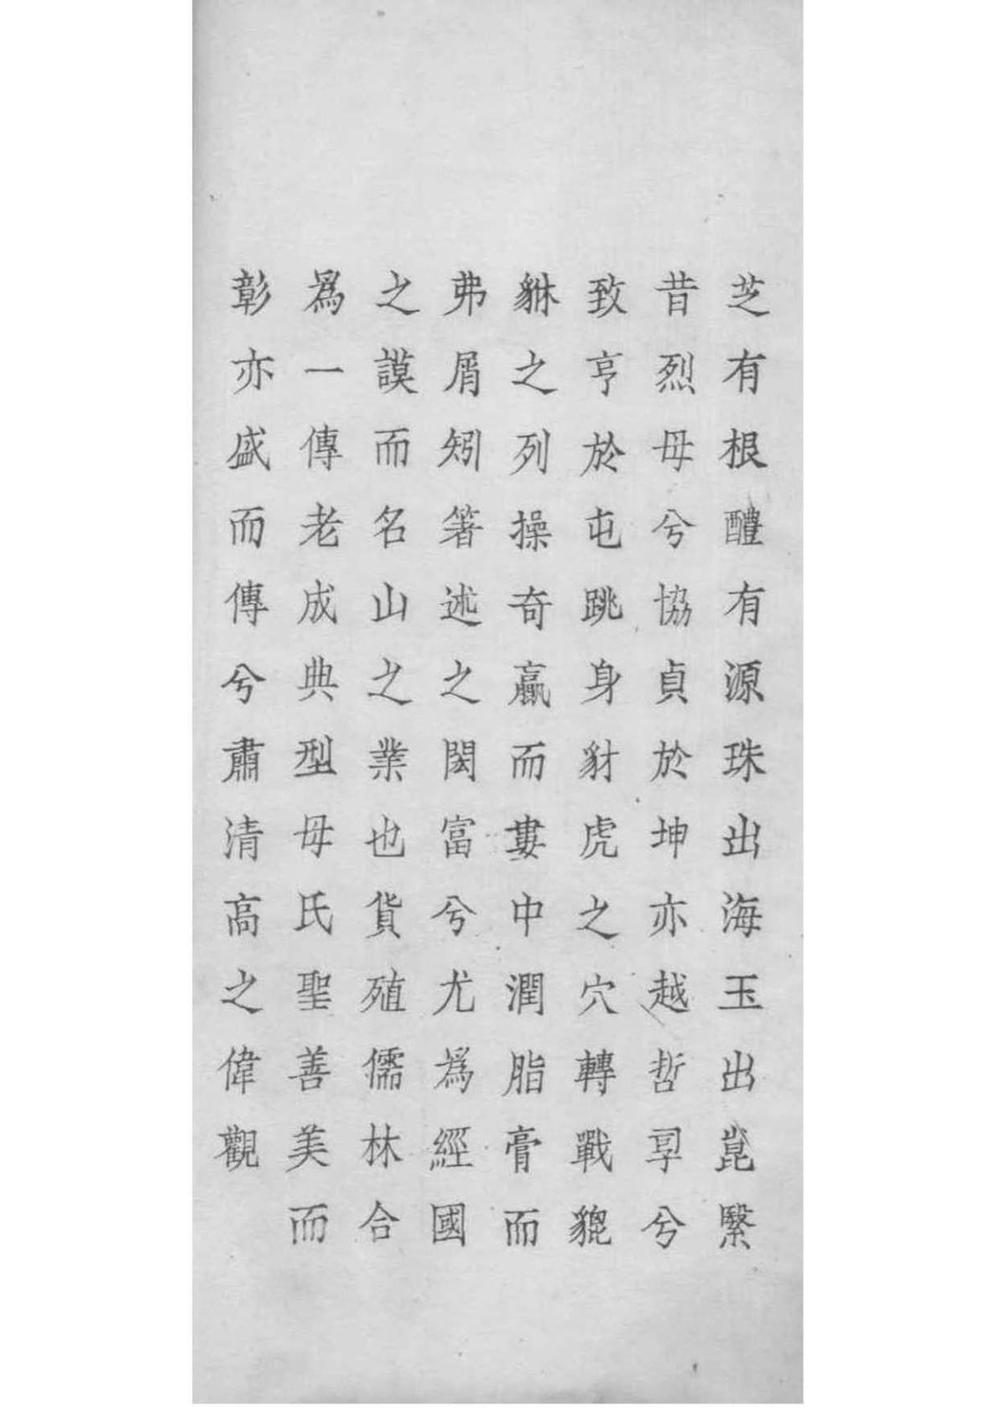 芝有根醴有源珠出海玉出崑繄
昔烈母兮協貞於坤亦越哲孠兮
致亨於屯跳身豺虎之穴轉戰貔
貅之列操奇贏而婁中潤脂膏而
弗屑矧箸述之閎富兮尤為經國
之謨而名山之業也貨殖儒林合
為一傳老成典型母氏聖善美而
彰亦盛而傳兮肅清高之偉觀